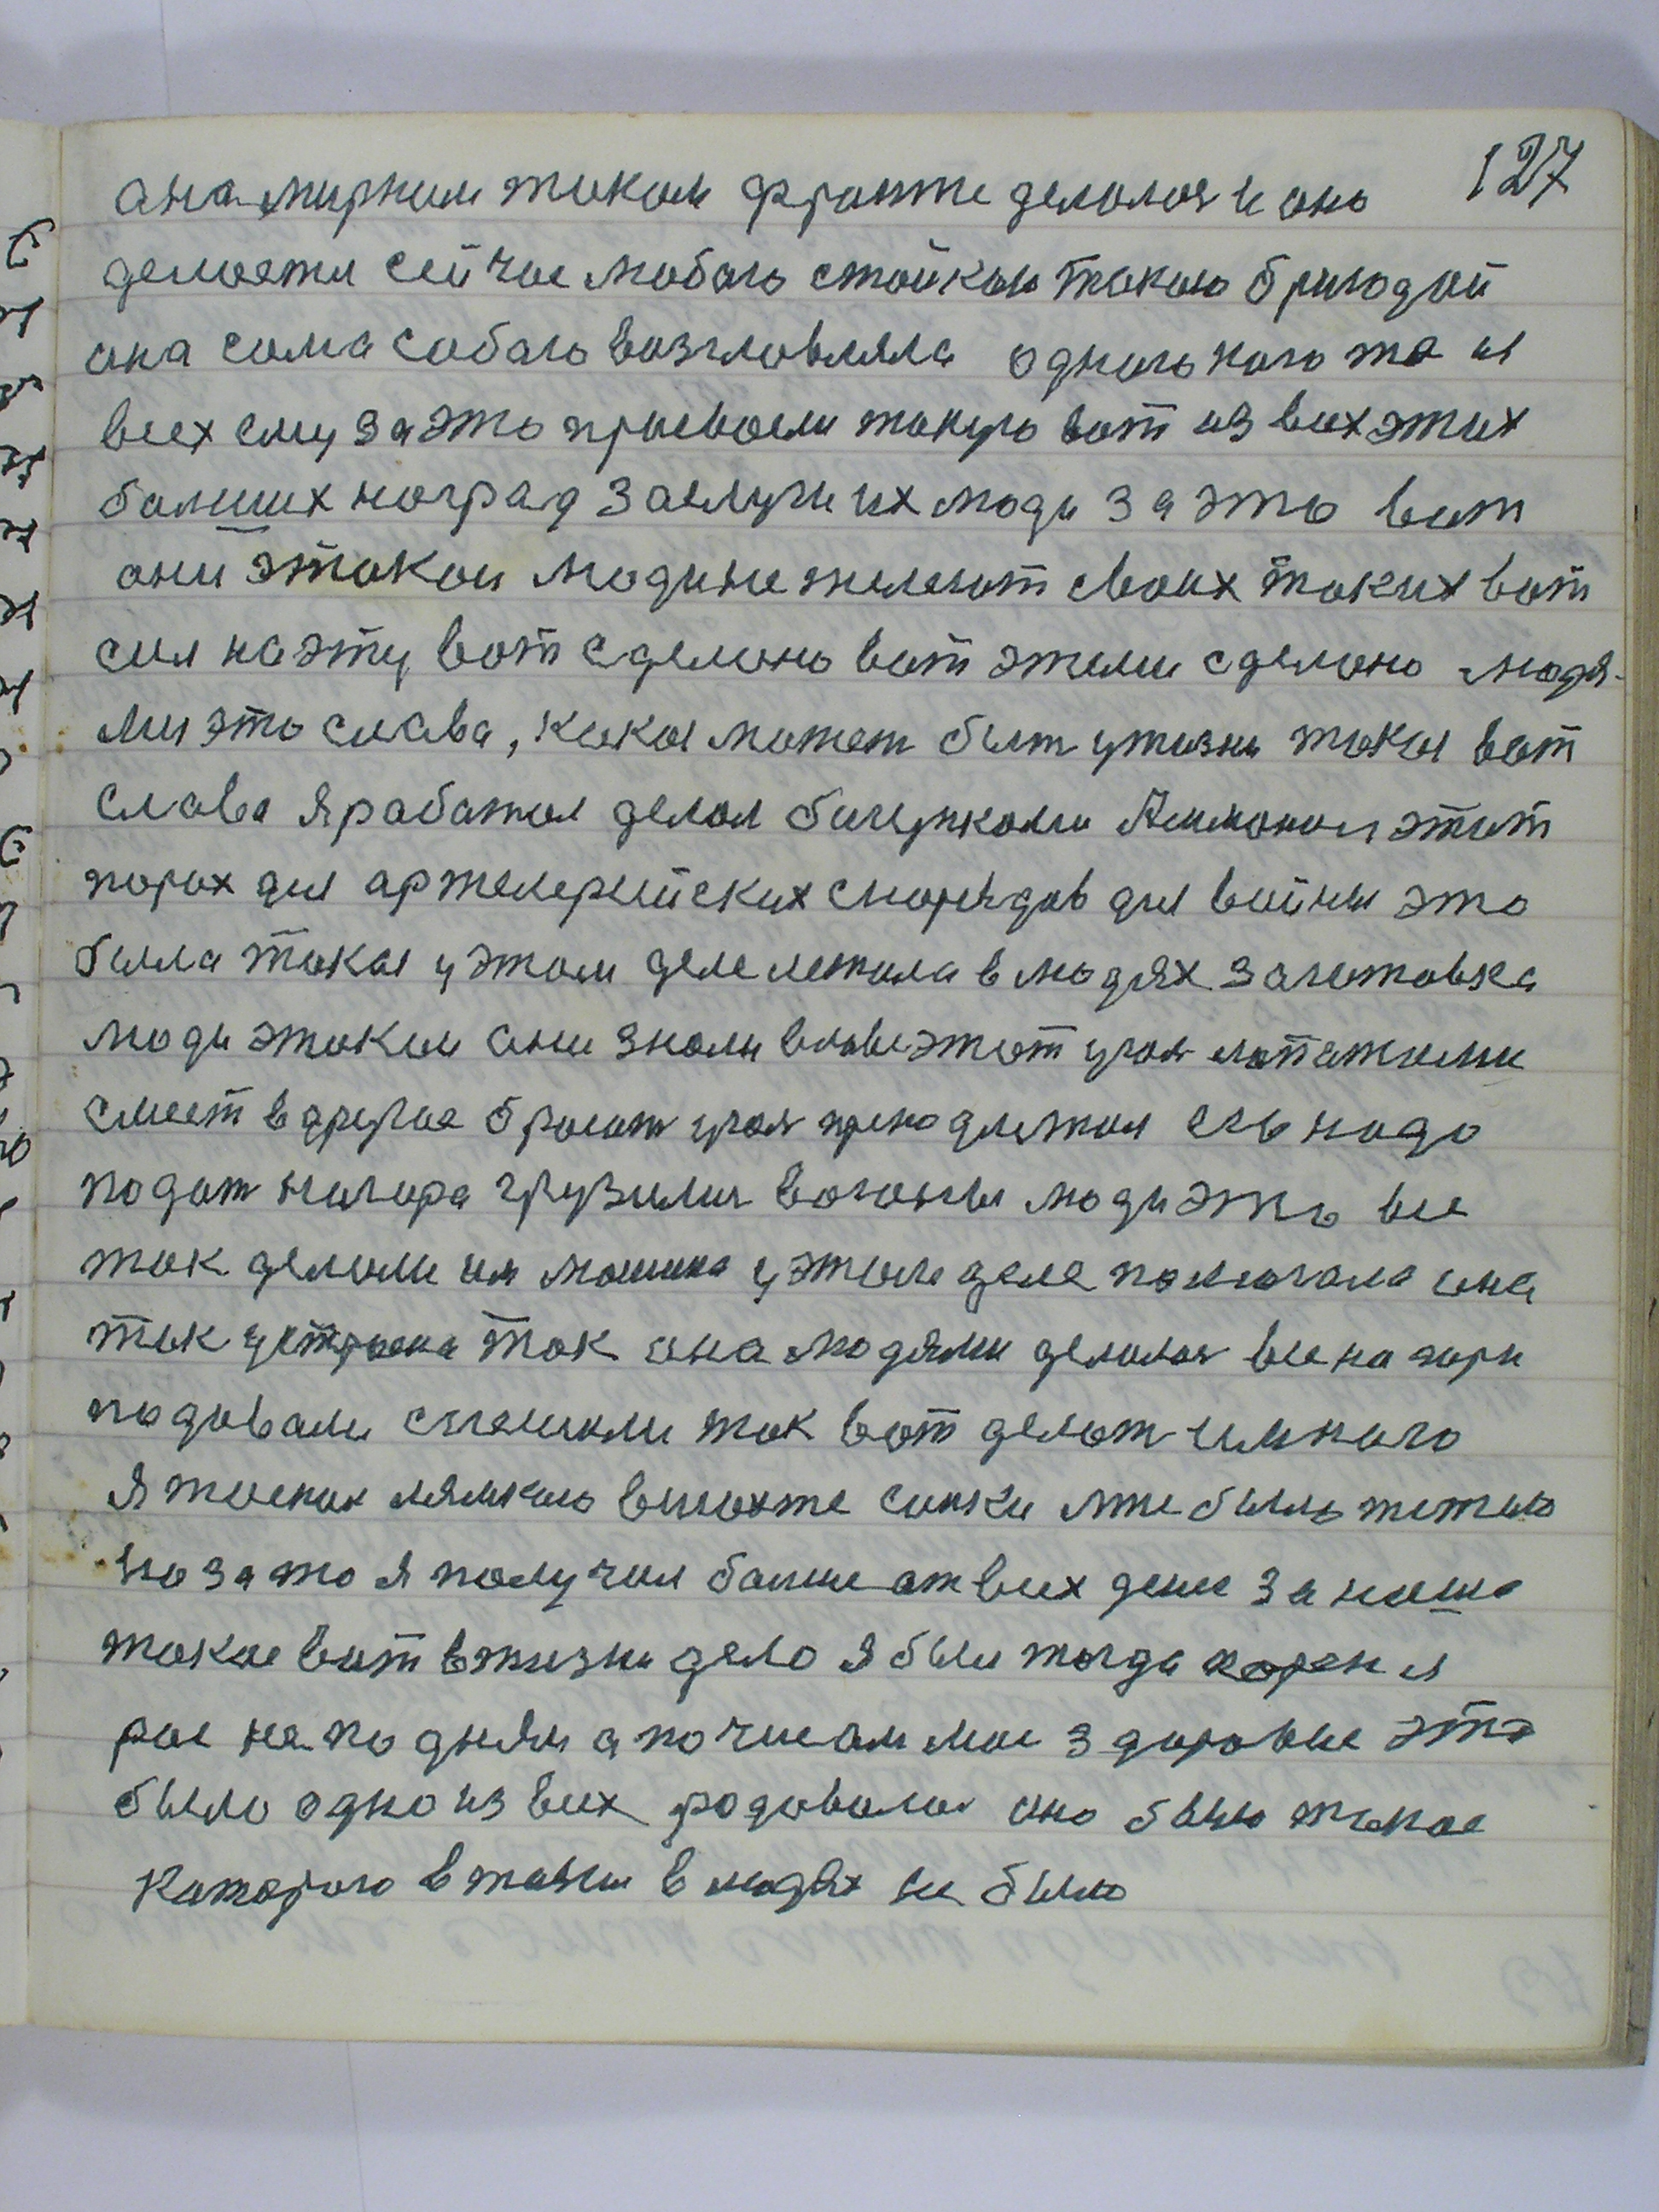 127
ана мирным таком фронте делалося и оно
делается сейчас любою стойкою такою бригадой
она сама собою возглавляла одного кого то из
всех ему за это присвоели такую вот из всех этих
балших наград заслуги их люди за это вот
они этакои люди не жалеют своих таких вот
сил на эту вот сделано вот этими сделано людя-
ми это слава, какая может быт у жизни такая вот
слава я работал делал Аммонал этот
порох для артелерейских снарядов для войны это
была такая у этом деле лежала в людях заготовка
люди этаким они знали этот угол лопатками
в другое бросат угол его надо
подат нагора грузили вагоны люди это все
так делали им машина у этом деле помогала она
так устроена так она людями делалося все на гора
подавали спешили так вот делат много
я таскал лямкою в шахте санки мне было тежело
но за то я получил балше от всех денег за наше
такое вот в жизни дело я был тогда корен я
рос не по дням а по часам мое здоровие это
было одно из всех родавалося оно было такое
каторого в жизни в людях не было